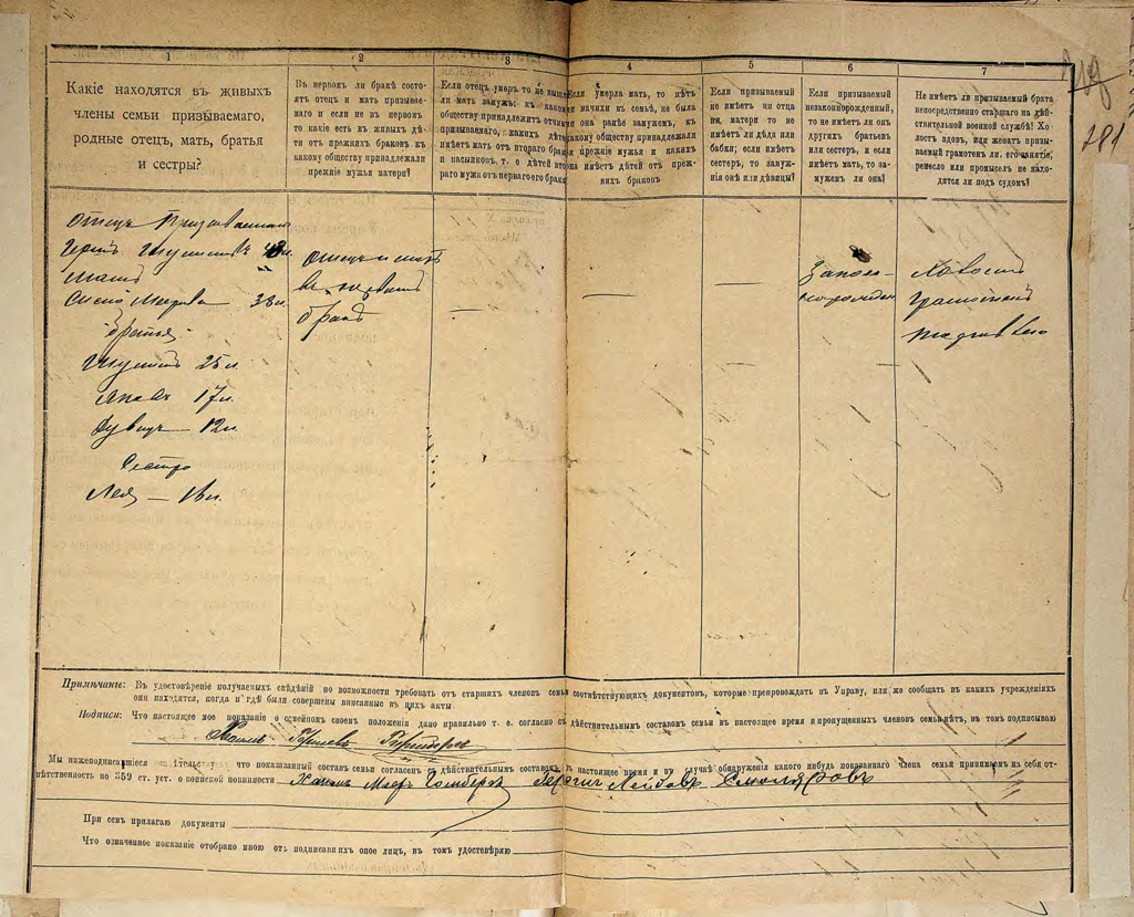 1
Какіе находятся въ живыхъ
члены семьи призываемаго,
родные отецъ, мать, братья
и сестры?
2
Въ первомъ ли бракѣ состо-
ятъ отецъ и мать призывае-
маго и если не въ первомъ
то какіе есть въ живыхъ дѣ-
ти отъ прежнихъ браковъ къ
какому обществу принадлежали
прежніе мужья матери?
3
Если отецъ умеръ то не выш
ли мать замужъ: къ каком
обществу принадлежитъ отчим
призываемаго, какихъ дѣте
имѣетъ мать отъ втораго брак
и пасынков, т. е дѣтей вто
раго мужа отъ перваго его брака
4
Если умерла мать, то нѣтъ
ли мачихи въ семьѣ, не была
ли она ранѣе замужемъ, къ
какому обществу принадлежали
прежніе мужья и какихъ
она имѣетъ дѣтей отъ преж-
нихъ браковъ
5
Если призываемый
не имѣетъ ни отца
ни, матери то не
имѣетъ ли дѣда или
бабки; если имѣетъ
сестеръ, то замуж-
нія онѣ или дѣвицы?
6
Если призываемый
незаконорожденный,
то не имѣетъ ли онъ
другихъ братьевъ
или сестеръ, и если
имѣетъ мать, то за-
мужемъ ли она?
7
Не имѣетъ ли призываемый брата
непосредственно старшаго на дѣй-
ствительной военной службѣ! Хо-
лостъ вдовъ, или женатъ призы-
ваемый грамотенъ ли, его занятіе,
ремесло или промыселъ не нахо-
дится ли подъ судомъ?
281
отецъ Призываемаго
48 л.
мать
38 л.
братья
25 л.
17 л.
12 л.
Сестра
Лея — 18 л.
отецъ и мать
въ первомъ
бракѣ
Холостъ
грамотенъ
Примѣчаніе: Въ удостовѣреніе получаемыхъ свѣдѣній по возможности требовать отъ старшихъ членовъ семьи соотвѣтствующихъ документовъ, которые препровождать въ Управу, или же сообщать въ какихъ учрежденіяхъ
они находятся, когда и гдѣ были совершены вписанные въ нихъ акты.
Подписи: Что настоящее мое показаніе о семейномъ своемъ положеніи дано правильно т. е. согласно съ дѣйствительнымъ составомъ семьи въ настоящее время и пропущенныхъ членовъ семьи нѣтъ, въ томъ подписываю
Хаимъ Гершевъ
Мы нижеподписавшіеся что показанный составъ семьи согласенъ съ дѣйствительнымъ составомъ въ настоящее время и въ случаѣ обнаруженія какого нибудь показаннаго члена семьи принимаемъ на себя от-
вѣтственность по 359 ст. уст. о воинской повинности Лейбовъ Смоляровъ
При семъ прилагаю документы
Что означенное показаніе отобрано мною отъ подписавшихъ оное лицъ, въ томъ удостовѣряю